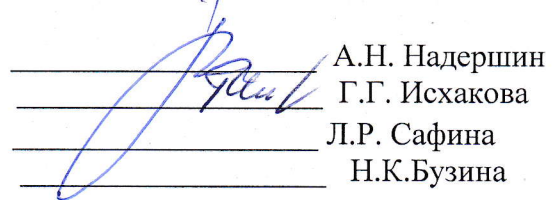 А.Н. Надершин
Г.Г. Исхакова
Л.Р. Сафина
Н.К.Бузина